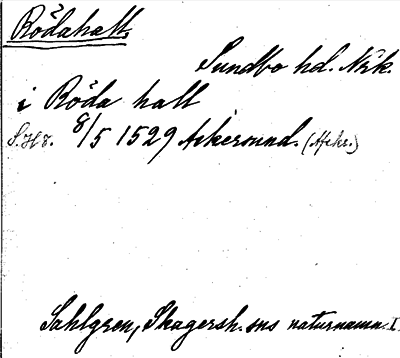 Rödahall.
Sundbo hd. Närk.
i Röda hall
S.H.8. 8/5 1529 Askersund. (Afskr.)
Sahlgren, Skagersh. sns naturnamn. I